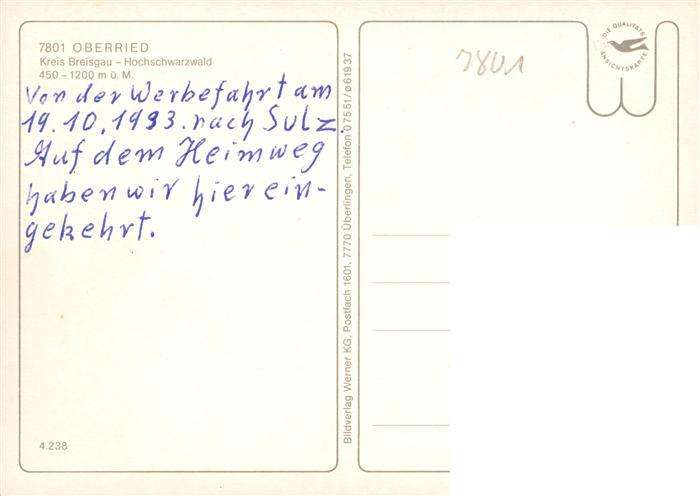 7801 OBERRIED
Kreis Breisgau – Hochschwarzwald
450 – 1200 m ü. M.
Von der Werbefahrt am
19.10.1993. nach Sulz.
Auf dem Heimweg
haben wir hier ein-
gekehrt.
4.238
Bildverlag Werner KG, Postfach 1601, 7770 Überlingen, Telefon 07551/⌀61937
7801
DIE QUALITÄTS
ANSICHTSKARTE